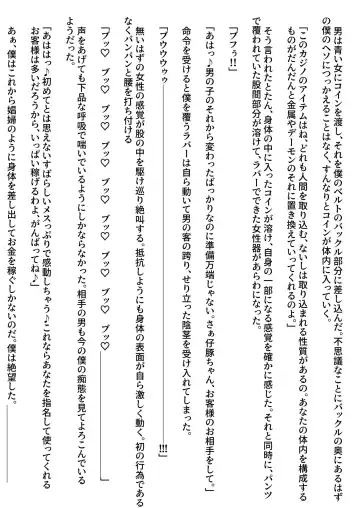 男は青い女にコインを渡し、それを僕のベルトのバックル部分に差し込んだ。不思議なことにバックルの奥にあるはず
の僕のヘソにつっかえることはなく、すんなりとコインが体内に入っていく。
「このカジノのアイテムはね、どれも人間を取り込む、ないしは取り込まれる性質があるの。あなたの体内を構成する
ものがだんだんと金属やデーモンのそれに置き換えていってくれるのよ。」
「ブフぅ!!」
そう言われたとたん、身体の中に入ったコインが溶け、自身の一部になる感覚を確かに感じた。それと同時に、パンツ
で覆われて股間部分が溶けて、ラバーでできた女性器があらわになった。
「あはっ♪男の子のそれから変わったばっかりなのに準備万端じゃない。さぁ仔豚ちゃん、お客様のお相手をして。」
命令を受けると僕を覆うラバーは自ら動いて男の客の跨り、せり立った陰茎を受け入れてしまった。
「ブウウウぅぅ!!!」
無いはずの女性の感覚が股の中を駆け巡り絶叫する。抵抗しようにも身体の表面が自ら激しく動く。初の行為である
なくパンパンと腰を打ち付ける
「ブッ♡ブッ♡ブッ♡ブッ♡ブッ♡」
声をあげても下品な呼吸で喘いでいるようにしかならなかった。相手の男も今の僕の痴態を見てよろこんでいる
ようだった。
「あはは♪初めてとは思えないすばらしいメスっぷりで感動しちゃう♪これならあなたを指名して使ってくれる
お客様は多いだろうから、いっぱい稼げるわよ、がんばってね♪」
あぁ、僕はこれから娼婦のように身体を差し出してお金を稼ぐしかないのだ。僕は絶望した。